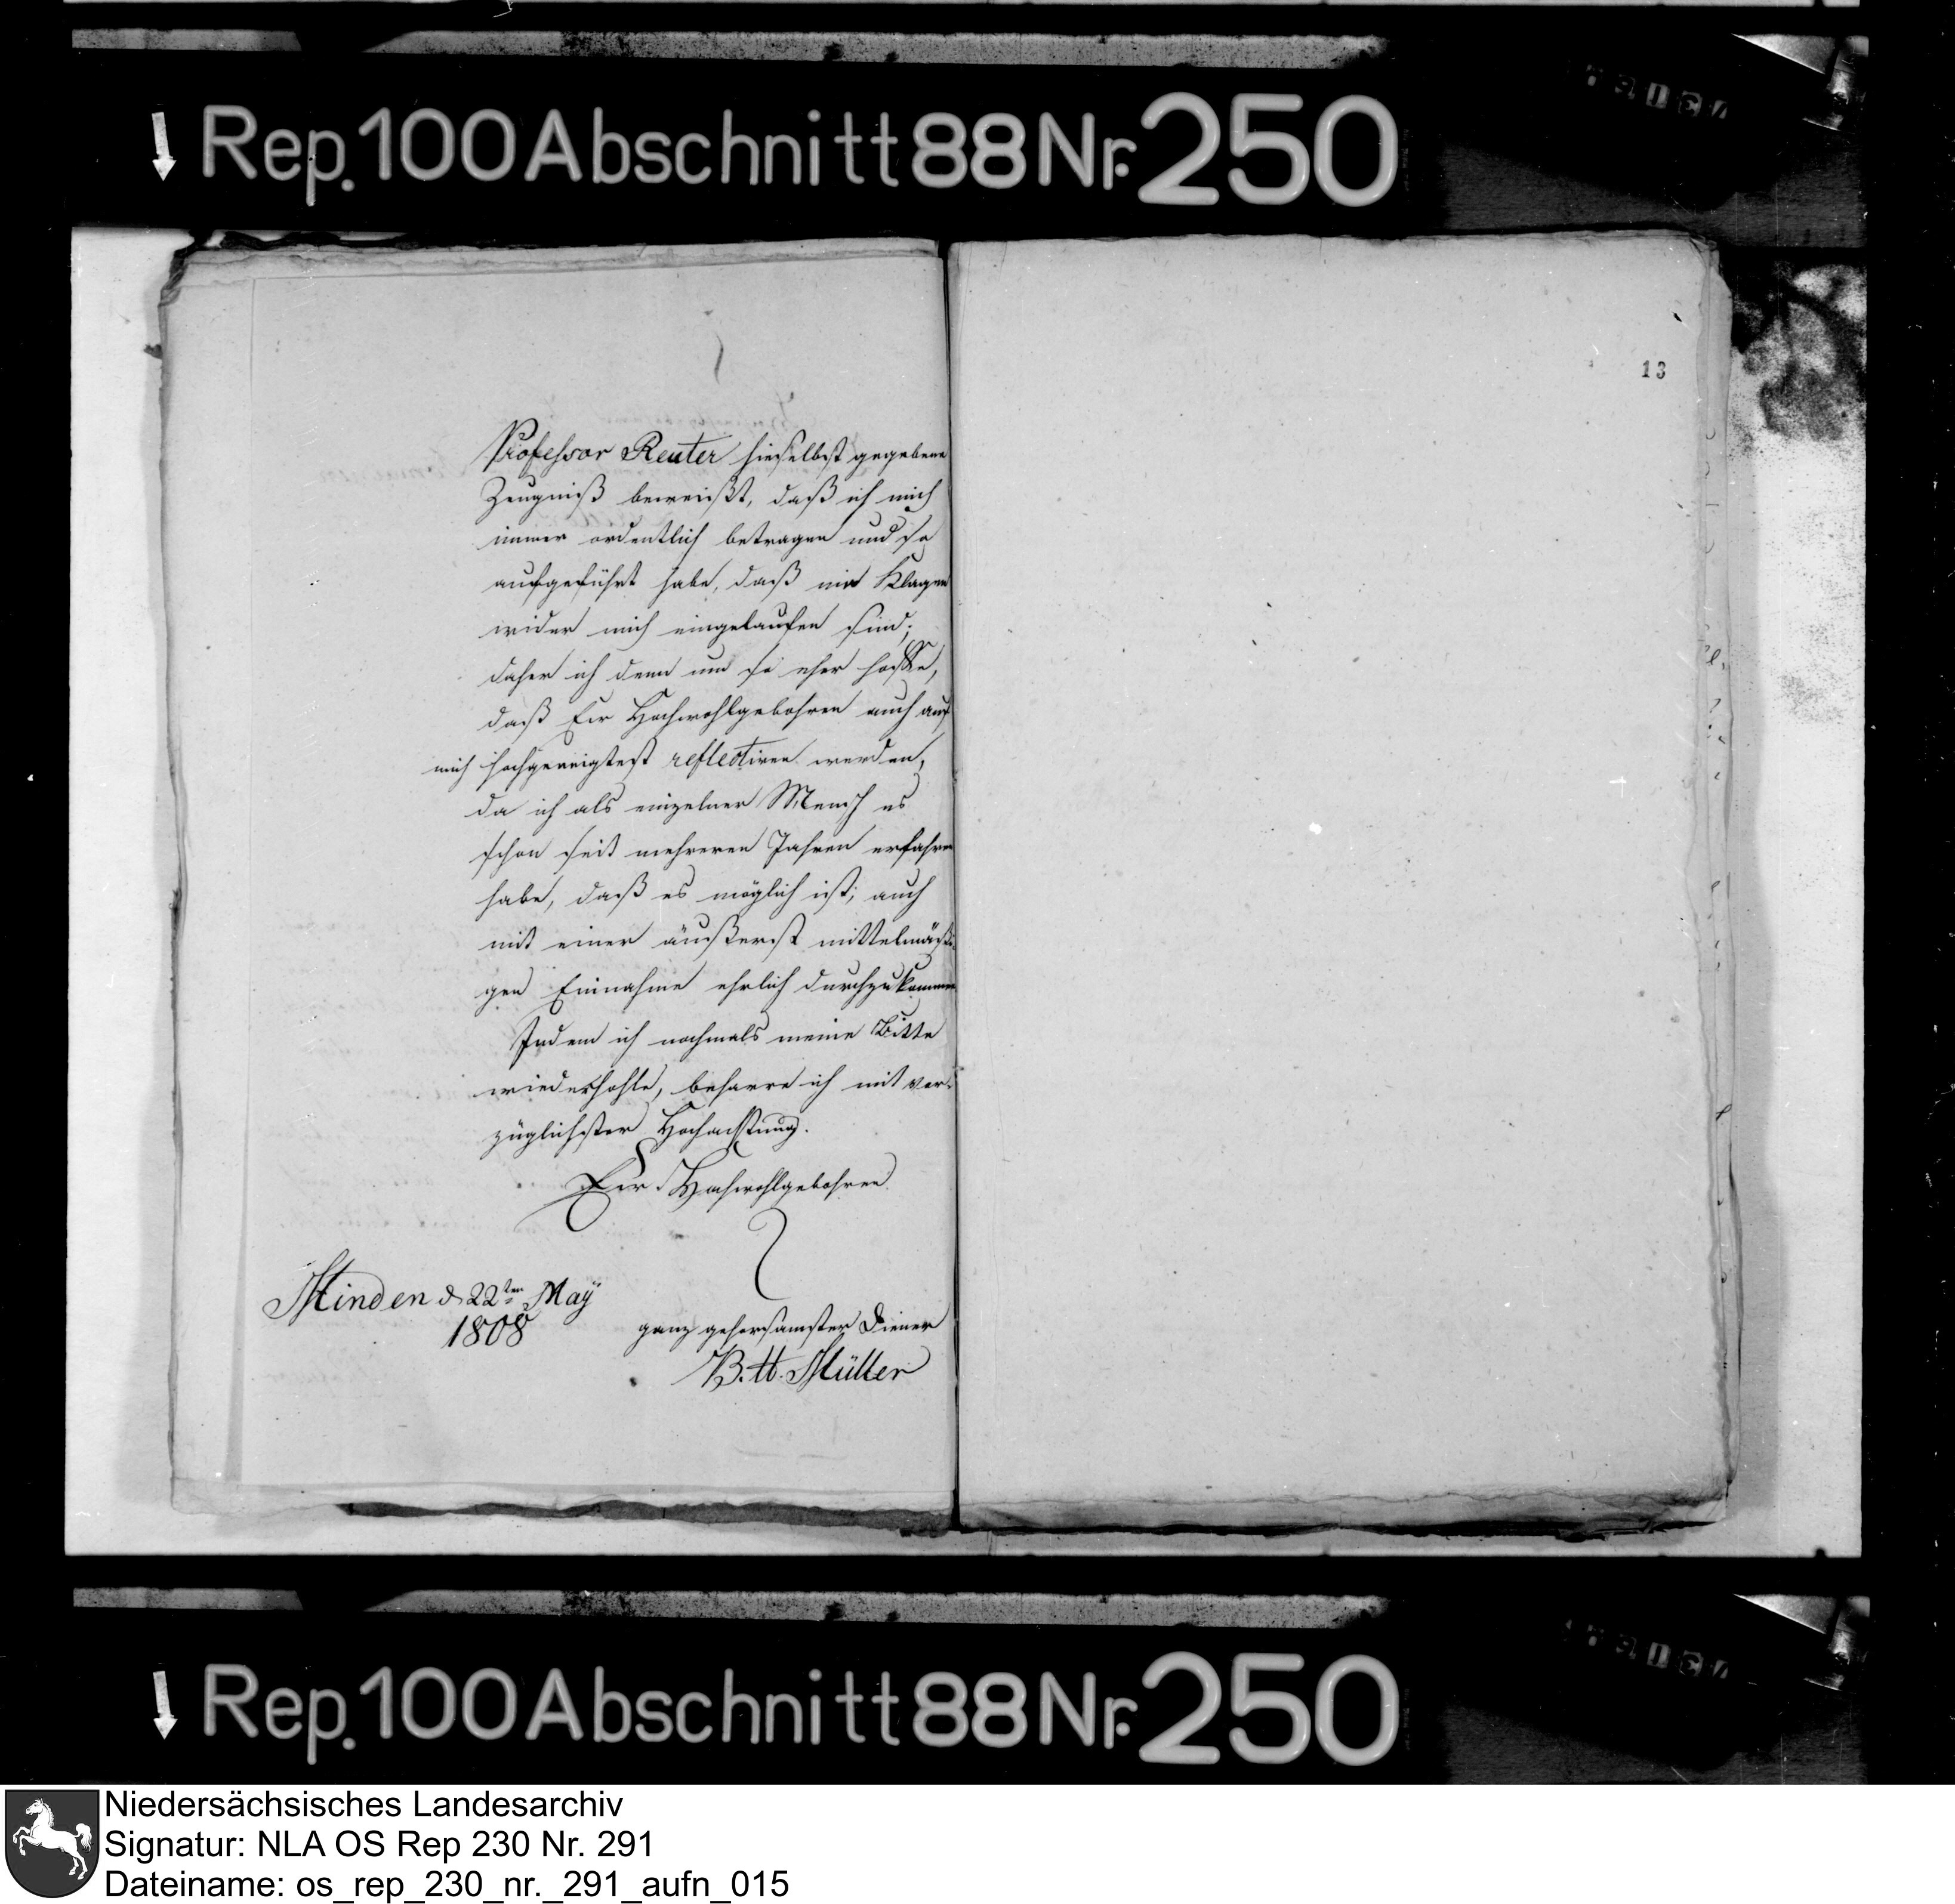 Rep. 100 Abschnitt 88 Nr. 250
13
Professor Reuter hieselbst gegebene
Zeugniß beweißt, daß ich mich
immer ordentlich betragen und so
aufgeführt habe, daß nie Klagen
wider mich eingelaufen sind;
daher ich denn um so eher hoffe,
daß Eur Hochwohlgebohren auch auf
mich hochgeneigtest reflectiren werden,
da ich als einzelner Mensch es
schon seit mehreren Jahren erfahren
habe, daß es möglich ist, auch
mit einer äußerst mittelmäßi-
gen Einnahme ehrlich durchzukommen
Indem ich nochmals meine Bitte
wiederhohle, beharre ich mit vor-
züglichster Hochachtung.
Eur Hochwohlgebohren
Minden d 22ten May
1808
ganz gehorsamster Diener
B. H. Müller
Rep. 100 Abschnitt 88 Nr. 250
Niedersächsisches Landesarchiv
Signatur: NLA OS Rep 230 Nr. 291
Dateiname: os_rep_230_nr._291_aufn_015